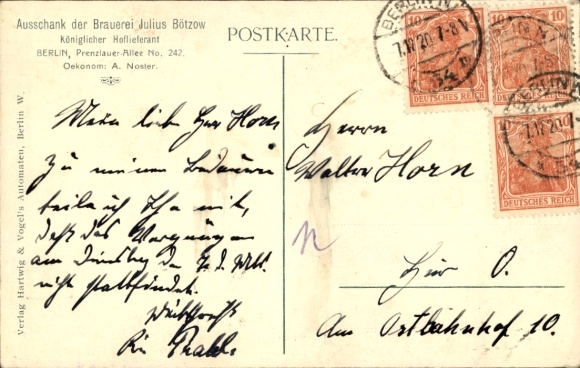 Ausschank der Brauerei Julius Bötzow
Königlicher Hoflieferant
BERLIN, Prenzlauer-Allee No. 242.
Oekonom: A. Noster.
POSTKARTE.
BERLIN N.
7.IV.20. 7-8 V.
54
10
10
DEUTSCHES REICH
DEUTSCHES REICH
7.IV.20.
Mein lieb Herr Horn
Zu meinem Bedauern
teile ich Ihn mit,
daß das Vergnügen
am Dienstag den
nicht stattfindet.
Herrn
Walter Horn
Hier O.
Am Ostbahnhof 10.
Verlag Hartwig & Vogel's Automaten, Berlin W.